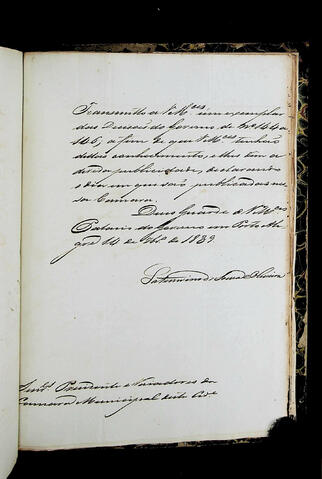 Transmitto a V.Mces um exemplar
das Decisões do Governo de Nos 144 a
146, a fim de que V.Mces tenhão
dellas conhecimento, e lhes dem a
devida publicidade, declarando
o dia em que são publicadas nes-
sa Camara.
Deos Guarde a V.Mces
Palacio do Governo em Porto Ale-
gre 14 de de 1839
Saturnino de Souza e Oliveira
Snres Presidente e Vereadores da
Camara Municipal desta Cide